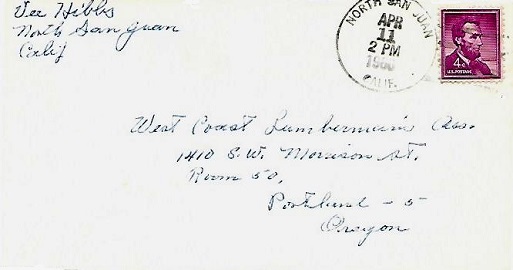 Vee Hibbs
North San Juan
Calif
NORTH SAN JUAN
APR
11
2 PM
1960
CALIF.
4¢
U.S. POSTAGE
West Coast Lumbermen's Ass.
1410 S.W. Morrison St.
Room 50,
Portland - 5
Oregon